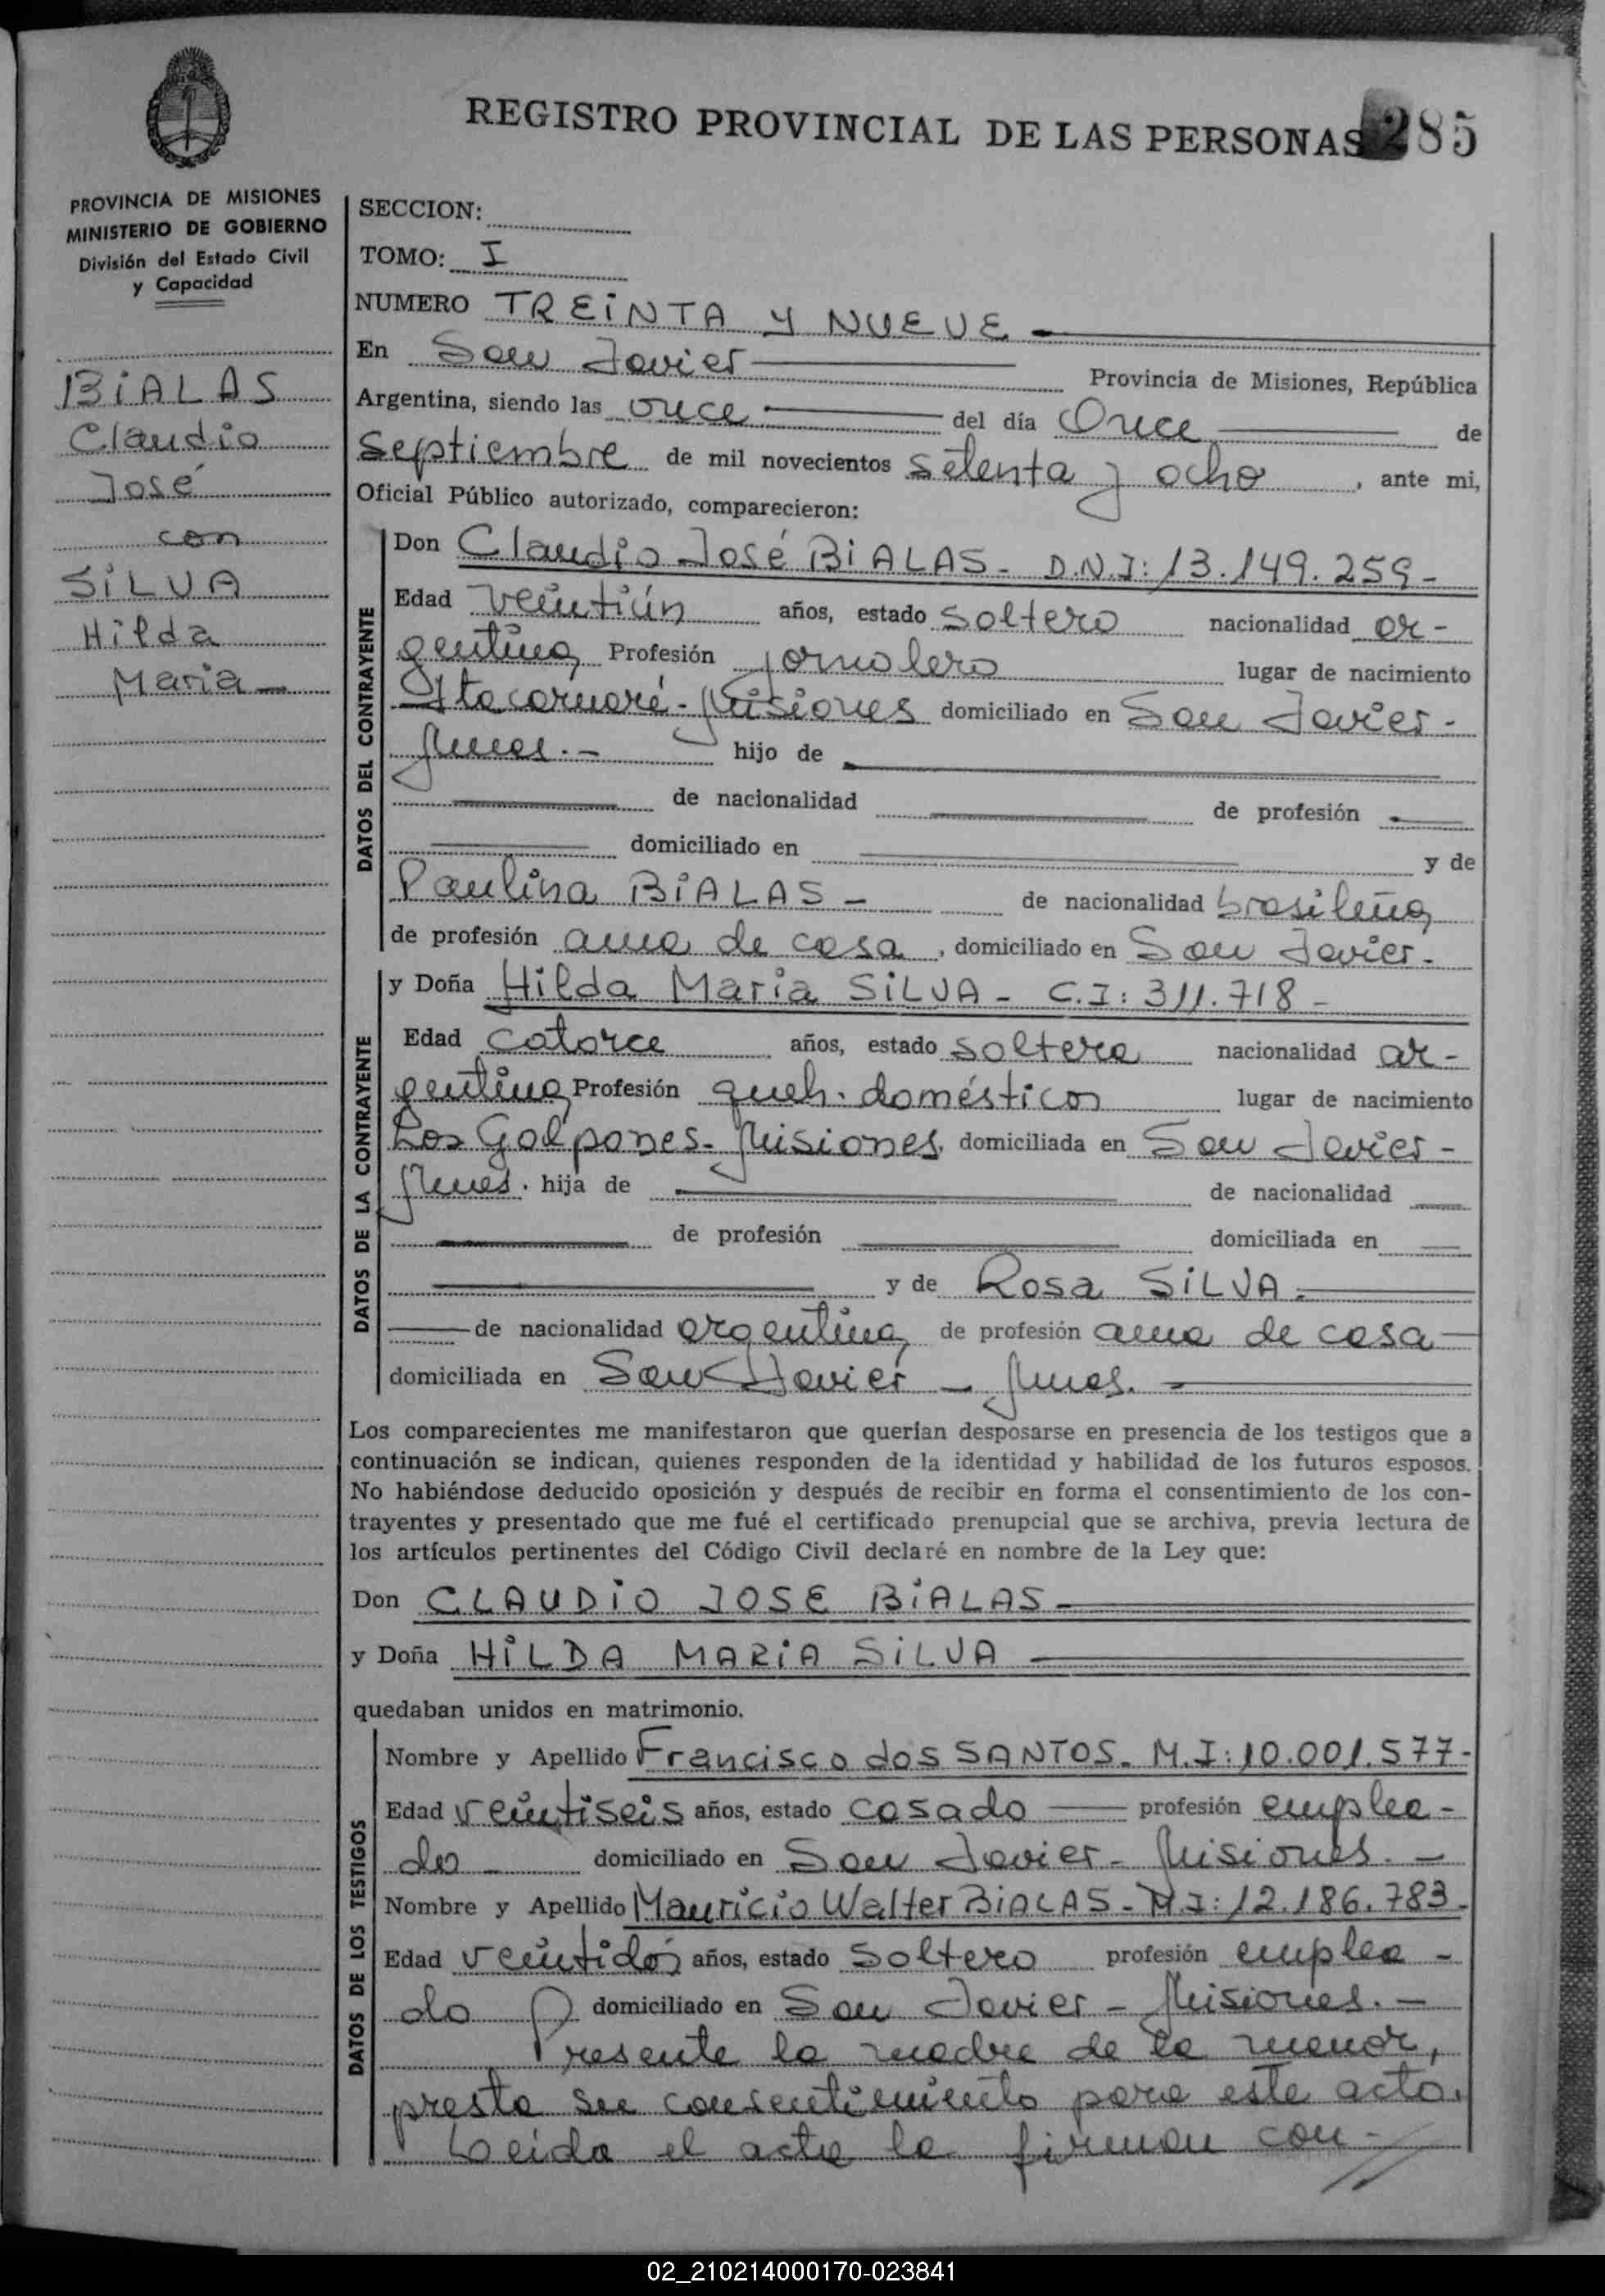 REGISTRO PROVINCIAL DE LAS PERSONAS 285
PROVINCIA DE MISIONES
MINISTERIO DE GOBIERNO
División del Estado Civil
y Capacidad
BIALAS
Claudio
José
con
SILVA
Hilda
Maria
SECCION:
TOMO: I
NUMERO TREINTA Y NUEVE
En San Javier Provincia de Misiones, República
Argentina, siendo las once del día Once de
Septiembre de mil novecientos setenta y ocho, ante mi,
Oficial Público autorizado, comparecieron:
DATOS DEL CONTRAYENTE
Don Claudio José BIALAS - D.N.I: 13.149.259-
Edad veintiún años, estado soltero nacionalidad ar-
gentina Profesión jornalero lugar de nacimiento
Itacaruaré - Misiones domiciliado en San Javier -
Mnes. - hijo de
de nacionalidad de profesión
domiciliado en y de
Paulina BIALAS - de nacionalidad brasileña
de profesión ama de casa, domiciliado en San Javier.
DATOS DE LA CONTRAYENTE
y Doña Hilda Maria SILVA - C.I: 311.718 -
Edad catorce años, estado soltera nacionalidad ar-
gentina Profesión queh. domésticos lugar de nacimiento
Los Galpones - Misiones, domiciliada en San Javier -
Mnes. hija de de nacionalidad
de profesión domiciliada en
y de Rosa SILVA.
de nacionalidad argentina de profesión ama de casa
domiciliada en San Javier - Mnes. -
Los comparecientes me manifestaron que querían desposarse en presencia de los testigos que a
continuación se indican, quienes responden de la identidad y habilidad de los futuros esposos.
No habiéndose deducido oposición y después de recibir en forma el consentimiento de los con-
trayentes y presentado que me fué el certificado prenupcial que se archiva, previa lectura de
los artículos pertinentes del Código Civil declaré en nombre de la Ley que:
Don CLAUDIO JOSE BIALAS
y Doña HILDA MARIA SILVA
quedaban unidos en matrimonio.
DATOS DE LOS TESTIGOS
Nombre y Apellido Francisco dos SANTOS - M.I: 10.001.577-
Edad veintiseis años, estado casado profesión emplea-
do - domiciliado en San Javier - Misiones. -
Nombre y Apellido Mauricio Walter BIALAS - M.I: 12.186.783-
Edad veintidós años, estado soltero profesión emplea -
do domiciliado en San Javier - Misiones. -
Presente la madre de la menor,
presta su consentimiento para este acto.
Leida el acta la firman con-
02_210214000170-023841